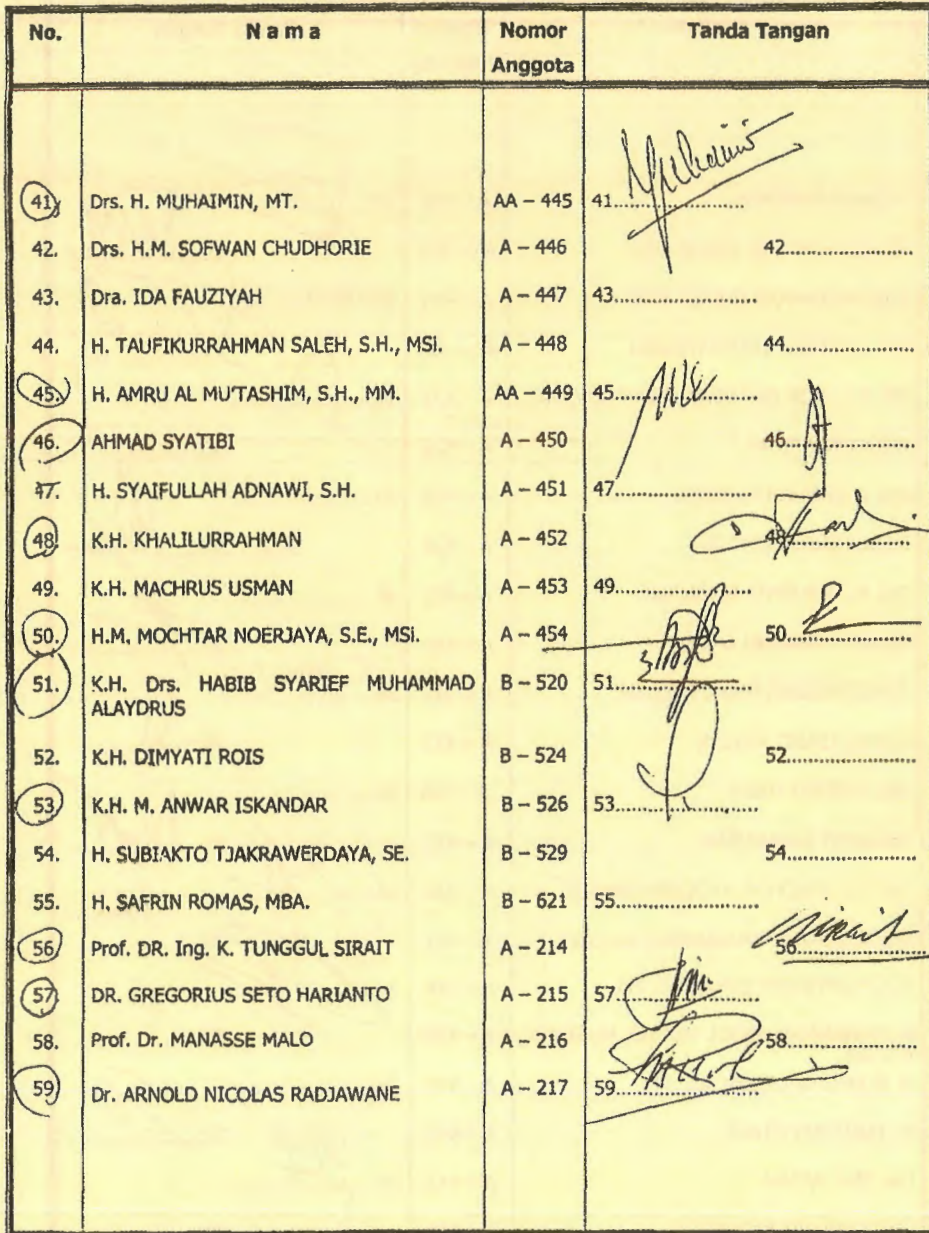 No. N a m a Nomor Anggota Tanda Tangan
41. Drs. H. MUHAIMIN, MT. AA – 445 41.....................
42. Drs. H.M. SOFWAN CHUDHORIE A – 446 42.....................
43. Dra. IDA FAUZIYAH A – 447 43.....................
44. H. TAUFIKURRAHMAN SALEH, S.H., MSi. A – 448 44.....................
45. H. AMRU AL MU'TASHIM, S.H., MM. AA – 449 45.....................
46. AHMAD SYATIBI A – 450 46.....................
47. H. SYAIFULLAH ADNAWI, S.H. A – 451 47.....................
48. K.H. KHALILURRAHMAN A – 452 48.....................
49. K.H. MACHRUS USMAN A – 453 49.....................
50. H.M. MOCHTAR NOERJAYA, S.E., MSi. A – 454 50.....................
51. K.H. Drs. HABIB SYARIEF MUHAMMAD B – 520 51.....................
ALAYDRUS
52. K.H. DIMYATI ROIS B – 524 52.....................
53 K.H. M. ANWAR ISKANDAR B – 526 53.....................
54. H. SUBIAKTO TJAKRAWERDAYA, SE. B – 529 54.....................
55. H. SAFRIN ROMAS, MBA. B – 621 55.....................
56 Prof. DR. Ing. K. TUNGGUL SIRAIT A – 214 56..................... Sirait
57 DR. GREGORIUS SETO HARIANTO A – 215 57.....................
58. Prof. Dr. MANASSE MALO A – 216 58.....................
59 Dr. ARNOLD NICOLAS RADJAWANE A – 217 59.....................